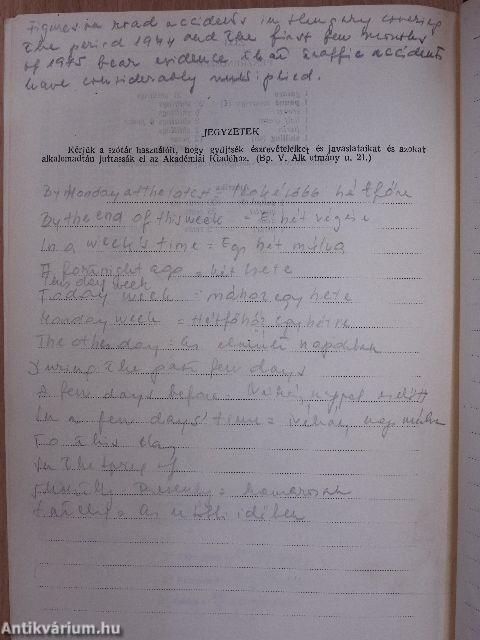 Figures on road accidents in Hungary covering
the period 1944 and the first few months
of 1945 bear evidence that traffic accidents
have considerably multiplied.
JEGYZETEK
Kérjük a szótár használóit, hogy gyűjtsék észrevételeiket és javaslataikat és azokat
alkalomadtán juttassák el az Akadémiai Kiadóhoz. (Bp. V. Alkotmány u. 21.)
By Monday at the latest = legkésőbb hétfőre
By the end of this week = E hét végére
In a week's time = Egy hét múlva
A fortnight ago = két hete
This day week
Today week = mához egy hete
Monday week = Hétfőhöz egy hétre
The other day = az elmúlt napokban
During the past few days
A few days before = néhány nappal előtt
In a few days' time = néhány nap múlva
To this day
In the
Presently = hamarosan
Lately = Az utóbbi időben
Antikvárium.hu